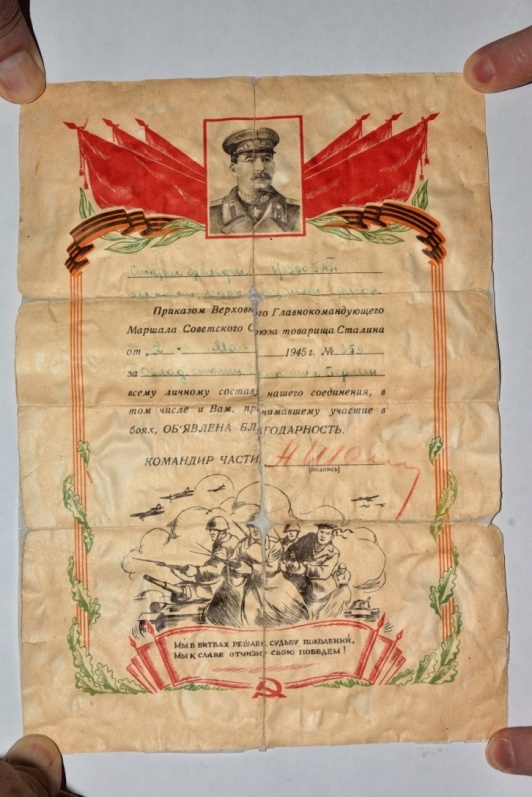 Приказом Верховного Главнокомандующего
Маршала Советского Союза товарища Сталина
от „2“ Мая 1945 г. № 359
за г. Берлин
всему личному составу нашего соединения, в
том числе и Вам, принимавшему участие в
боях, ОБ'ЯВЛЕНА БЛАГОДАРНОСТЬ.
КОМАНДИР ЧАСТИ
(подпись)
МЫ В БИТВАХ РЕШАЕМ СУДЬБУ ПОКОЛЕНИЙ,
МЫ К СЛАВЕ ОТЧИЗНУ СВОЮ ПОВЕДЕМ!